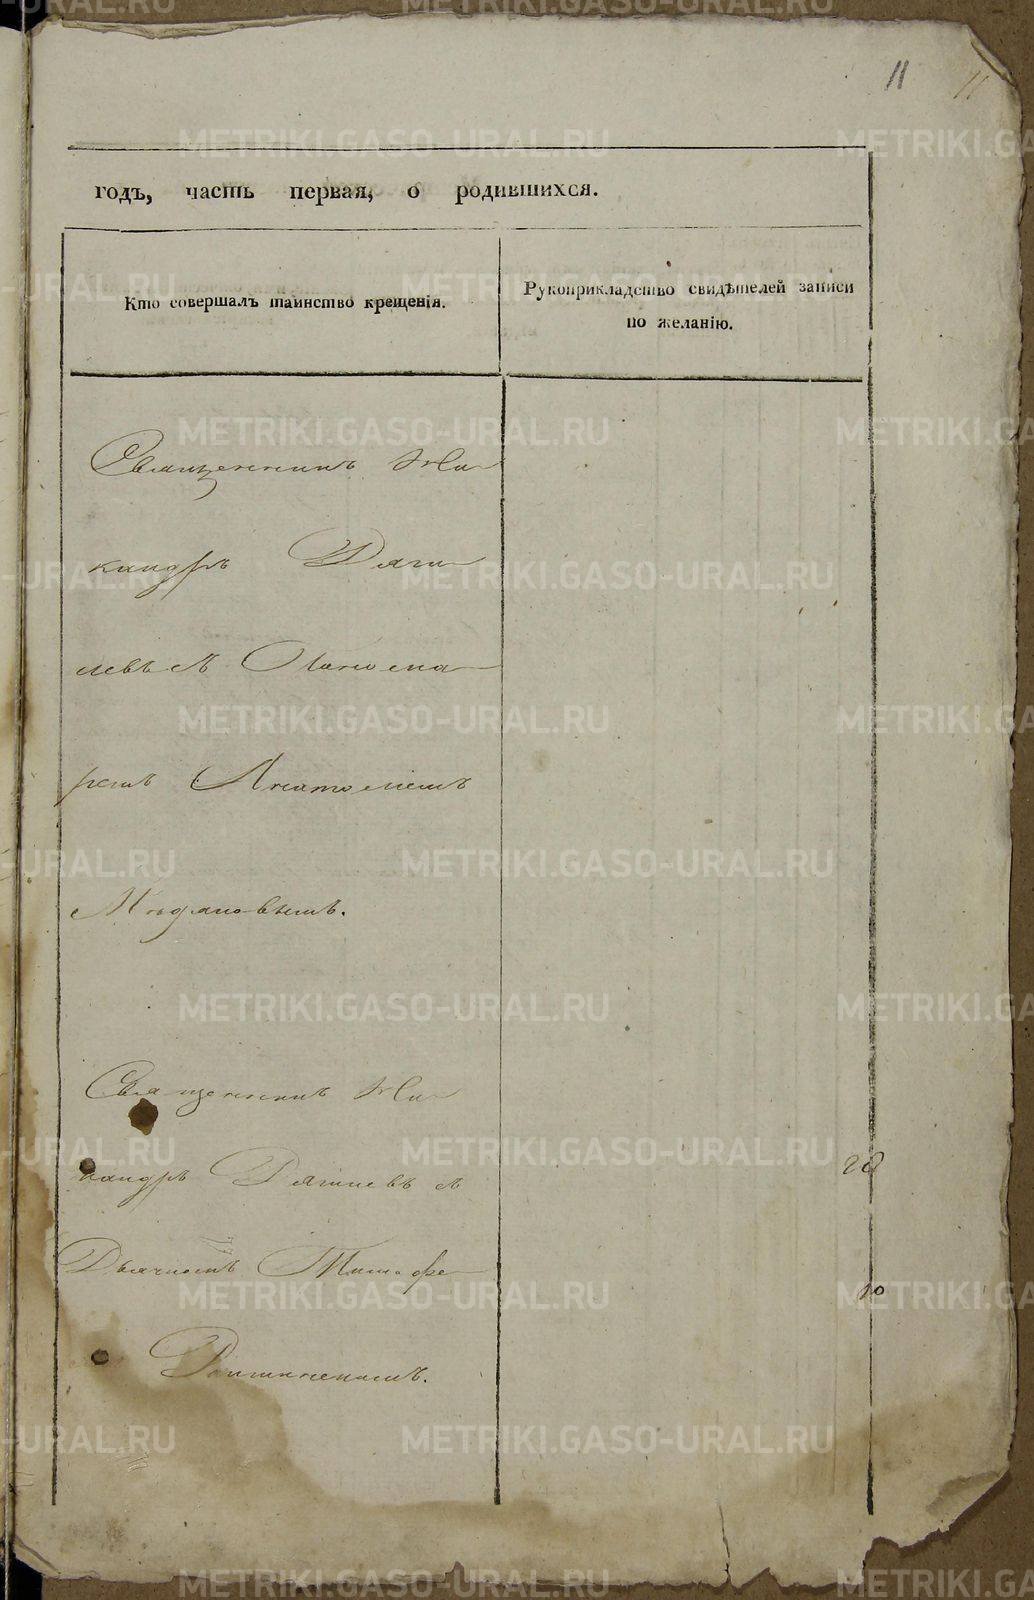 11
11
годъ, часть первая, о родившихся.
Кто совершалъ таинство крещенія.
Рукоприкладство свидѣтелей записи
по желанію.
Священникъ Ни
кандръ Дяги
левъ съ Поно
ремъ Анатолiемъ
Священникъ Ни
кандръ Дягилевъ съ
Дьячкомъ
28
10
METRIKI.GASO-URAL.RU